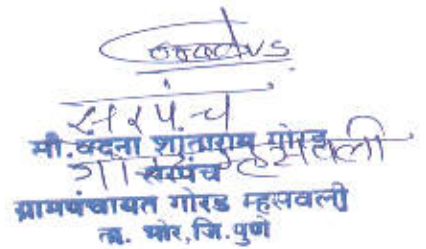 सरपंच
सौ.वंदना शांताराम गोरड
सरपंच
ग्रामपंचायत गोरड म्हसवली
ता. भोर,जि.पुणे